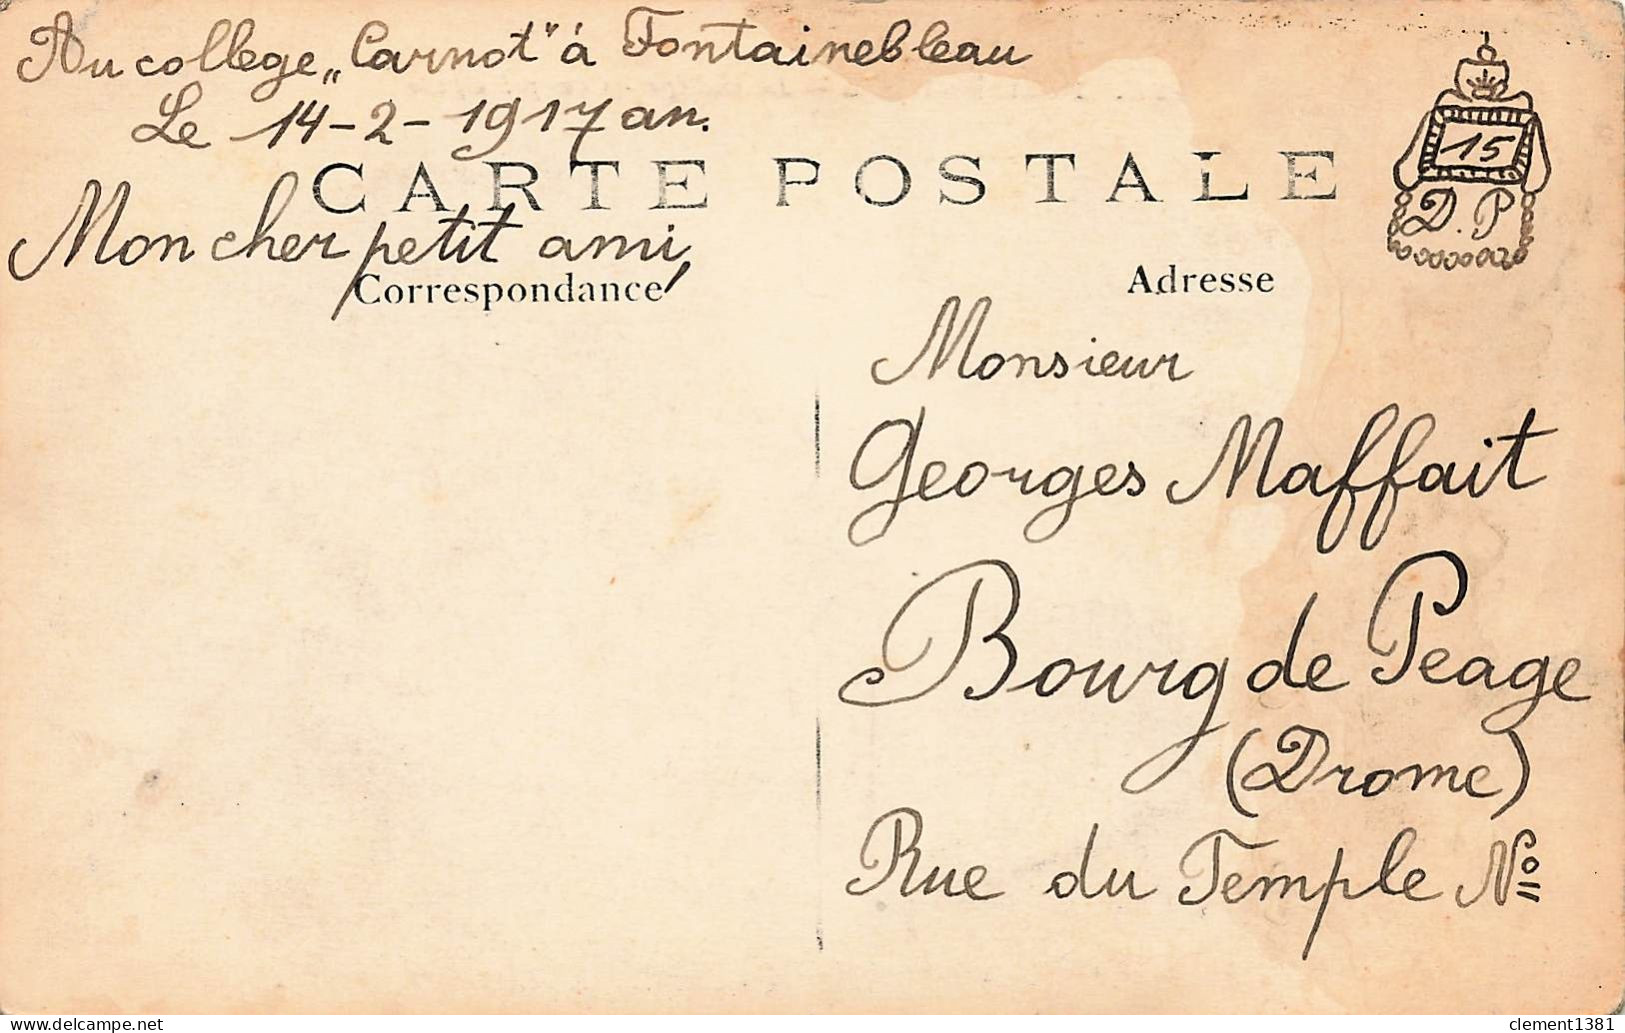 Au college „Carnot" à Fontainebleau
Le 14-2-1917 an.
CARTE POSTALE
Mon cher petit ami,
Correspondance
Adresse
15
D.P
Monsieur
Georges Maffait
Bourg de Peage
(Drome)
Rue du Temple Nº
clement1381